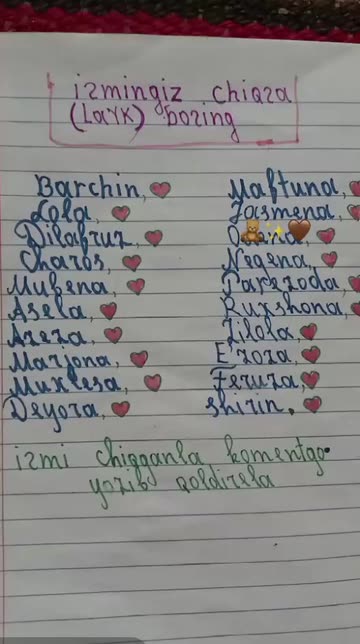 izmingiz chiqza
(LaYK) bozing
Barchin,
Lola,
Dilafruz,
Charos,
Mubena,
Asela,
Azeza,
Marjona,
Muxlesa,
Deyora,
Maftuna,
Jasmena,
Negena,
Parezoda,
Ruxshona,
Zilola,
E'zoza,
Feruza,
Shirin,
izmi chiqganla komentga
yozib qoldirela